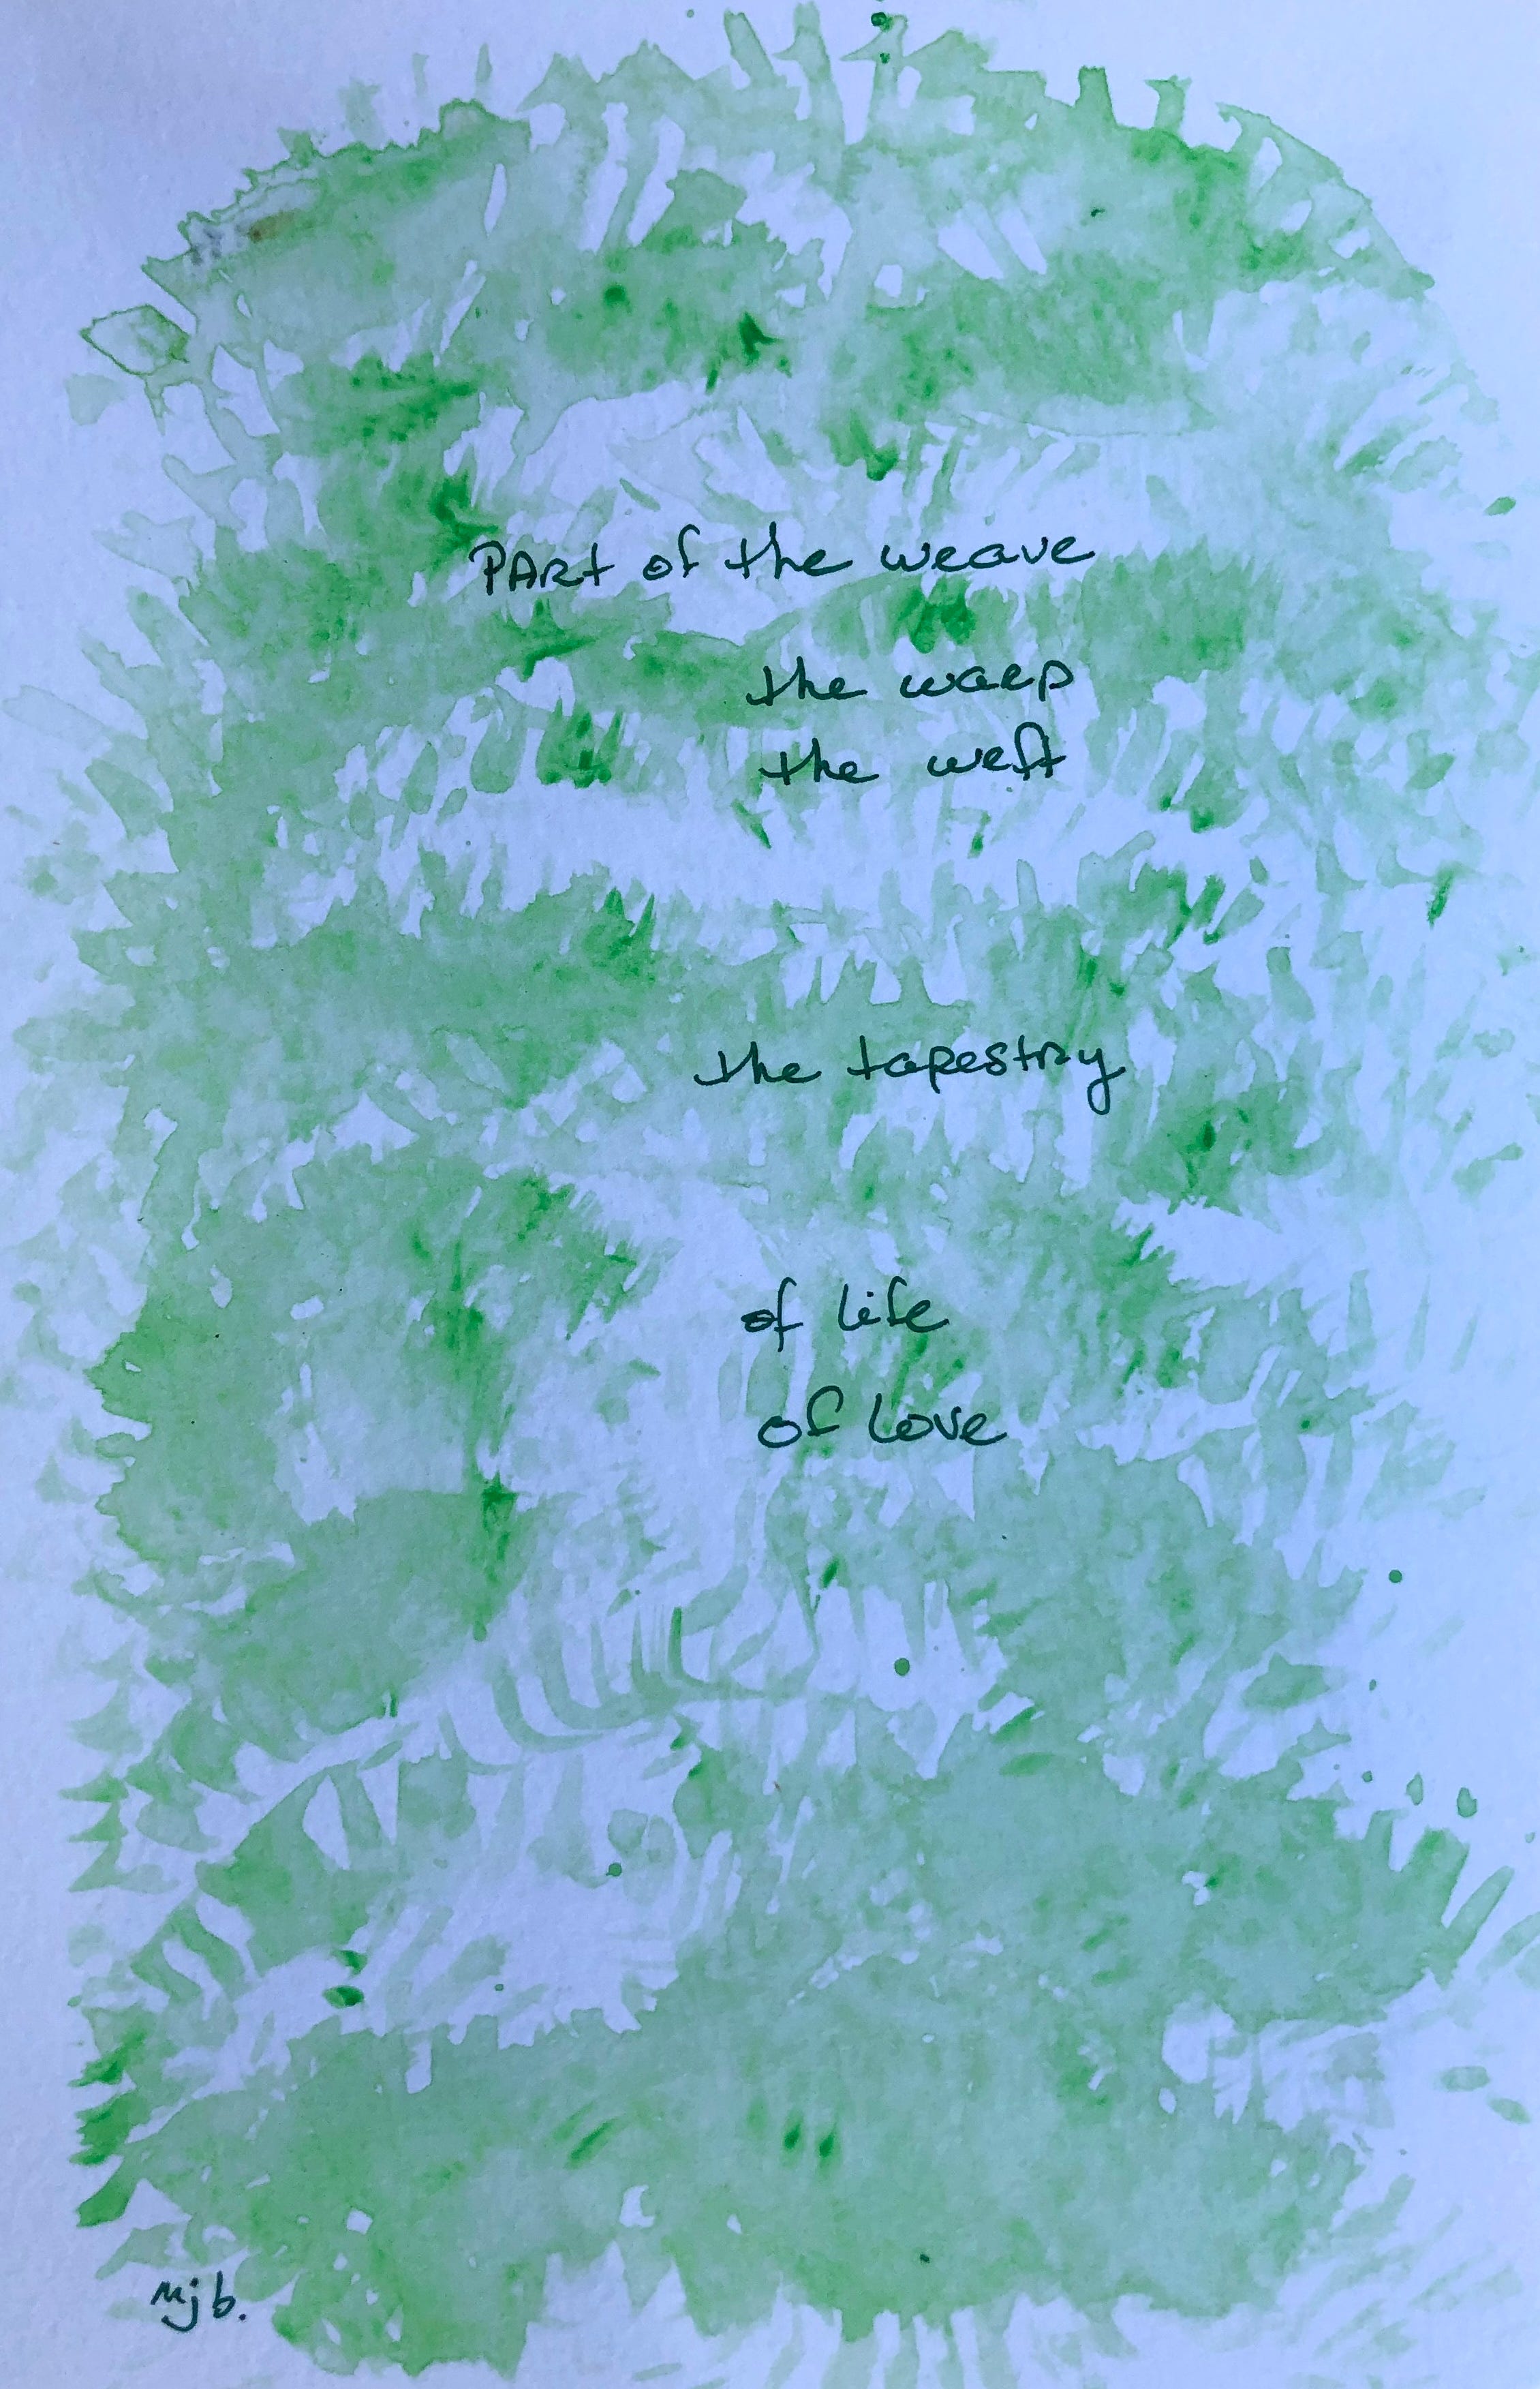 PARt of the weave
the warp
the weft
the tapestry
of life
of love
mjb.